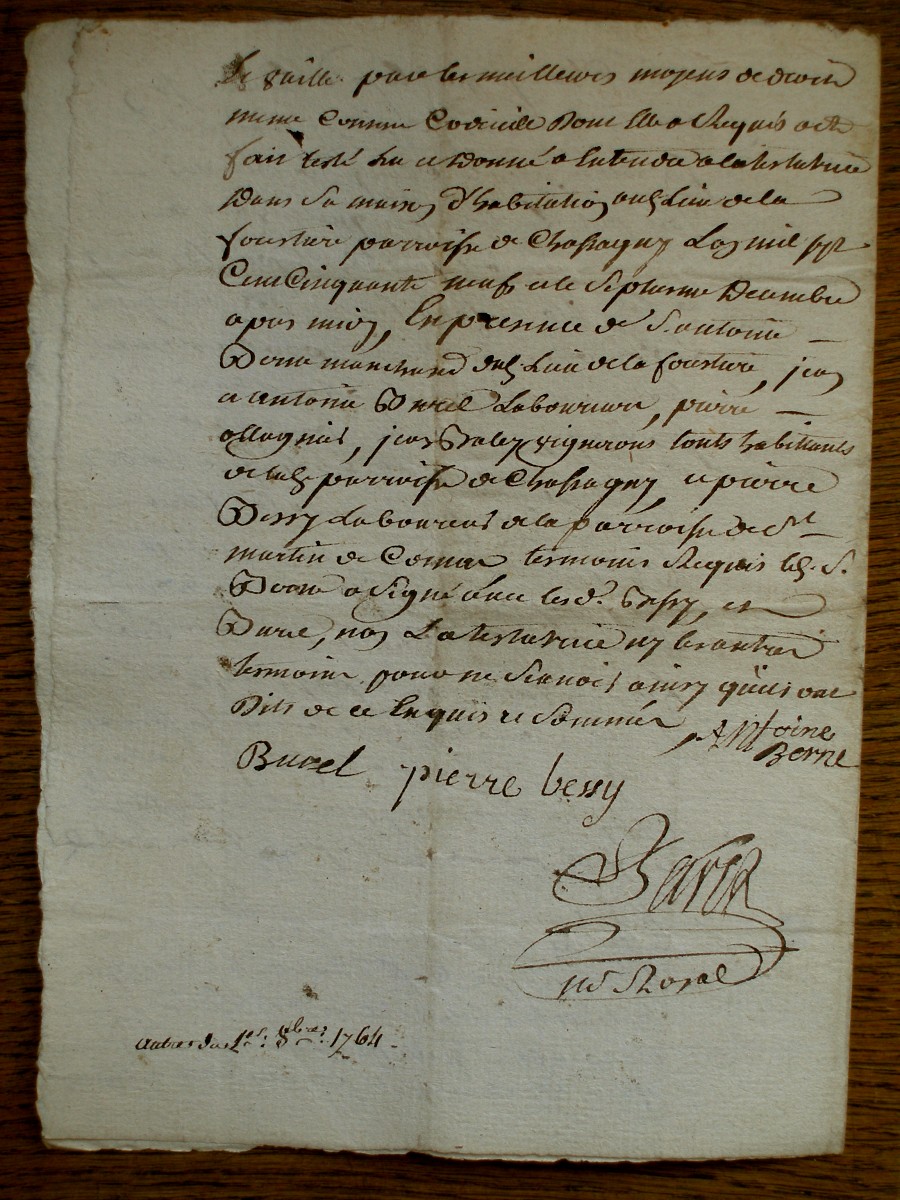 vaille par les meilleures moyens de droit
meme comme Codicille Dont Elle a Requis acte
fait testé lu et donné a Entendre a la testatrice
Dans sa maison d'habitation aud. Lieu de la
fourtiere parroisse de Chassagny Lan mil sept
Cent Cinquante neuf et le septieme Decembre
apres midy, En presence de S. antoine
Berne marchand dud. Lieu de la fourtiere, jean
et antoine Burel Laboureurs, pierre
allognié, jean vignerons touts habittants
de lad. parroisse de Chassagny et pierre
Bessy Laboureur de la parroisse de St
martin de Cornas temoins Requis led. S.
Berne a signé avec lesd. Bessy, et
Burel, non La testatrice ny les autres
temoins pour ne scavoir ainsy qu'ils ont
Dits de ce Enquis et sommés
Antoine
Berne
Burel pierre bessy
nre Royal
autre du 1er. 8bre. 1764